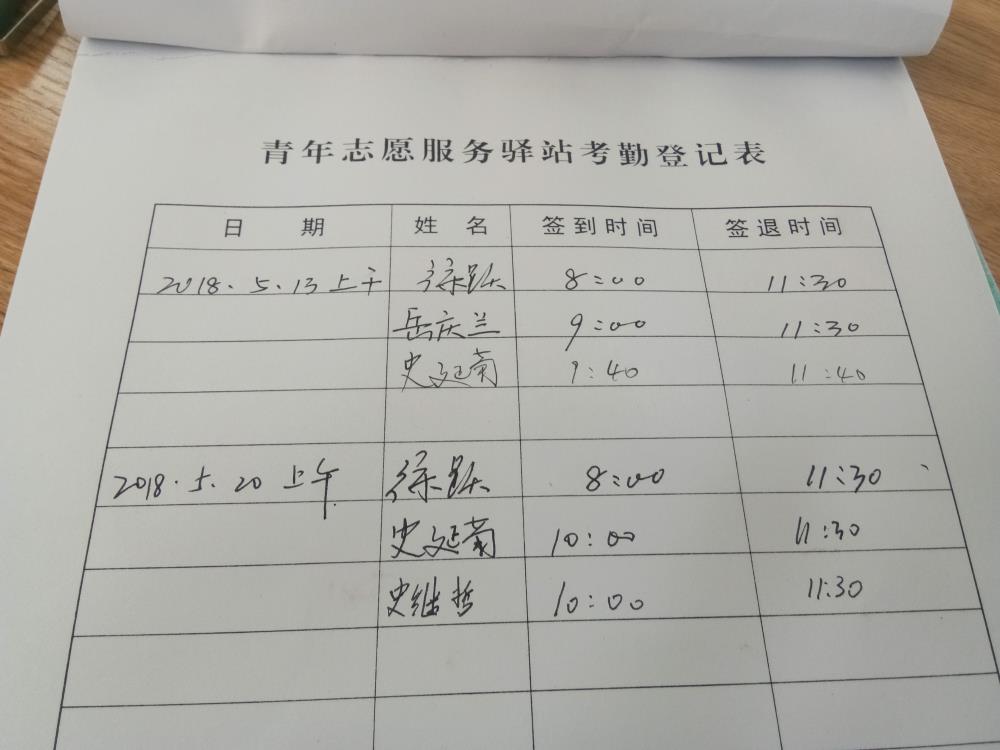 青年志愿服务驿站考勤登记表
日 期 姓 名 签到时间 签退时间
2018.5.13上午 徐跃 8:00 11:30
岳庆兰 9:00 11:30
史延菊 9:40 11:40
2018.5.20 上午 徐跃 8:00 11:30
史延菊 10:00 11:30
史继哲 10:00 11:30